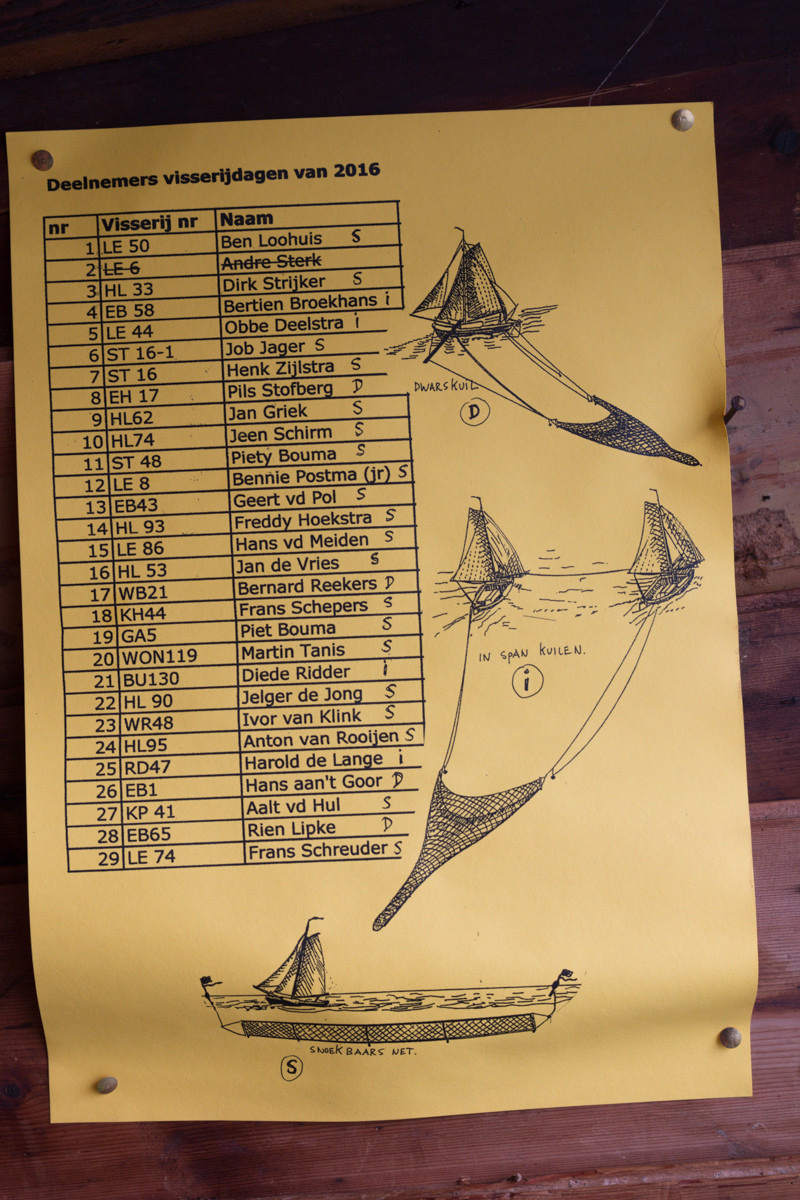 Deelnemers visserijdagen van 2016
nr Visserij nr Naam
1 LE 50 Ben Loohuis S
2 LE 6 Andre Sterk
3 HL 33 Dirk Strijker S
4 EB 58 Bertien Broekhans i
5 LE 44 Obbe Deelstra i
6 ST 16-1 Job Jager S
7 ST 16 Henk Zijlstra S
8 EH 17 Pils Stofberg D
9 HL62 Jan Griek S
10 HL74 Jeen Schirm S
11 ST 48 Piety Bouma S
12 LE 8 Bennie Postma (jr) S
13 EB43 Geert vd Pol S
14 HL 93 Freddy Hoekstra S
15 LE 86 Hans vd Meiden S
16 HL 53 Jan de Vries S
17 WB21 Bernard Reekers D
18 KH44 Frans Schepers S
19 GA5 Piet Bouma S
20 WON119 Martin Tanis S
21 BU130 Diede Ridder i
22 HL 90 Jelger de Jong S
23 WR48 Ivor van Klink S
24 HL95 Anton van Rooijen S
25 RD47 Harold de Lange i
26 EB1 Hans aan't Goor D
27 KP 41 Aalt vd Hul S
28 EB65 Rien Lipke D
29 LE 74 Frans Schreuder S
DWARSKUIL
D
IN SPAN KUILEN.
i
SNOEKBAARS NET.
S